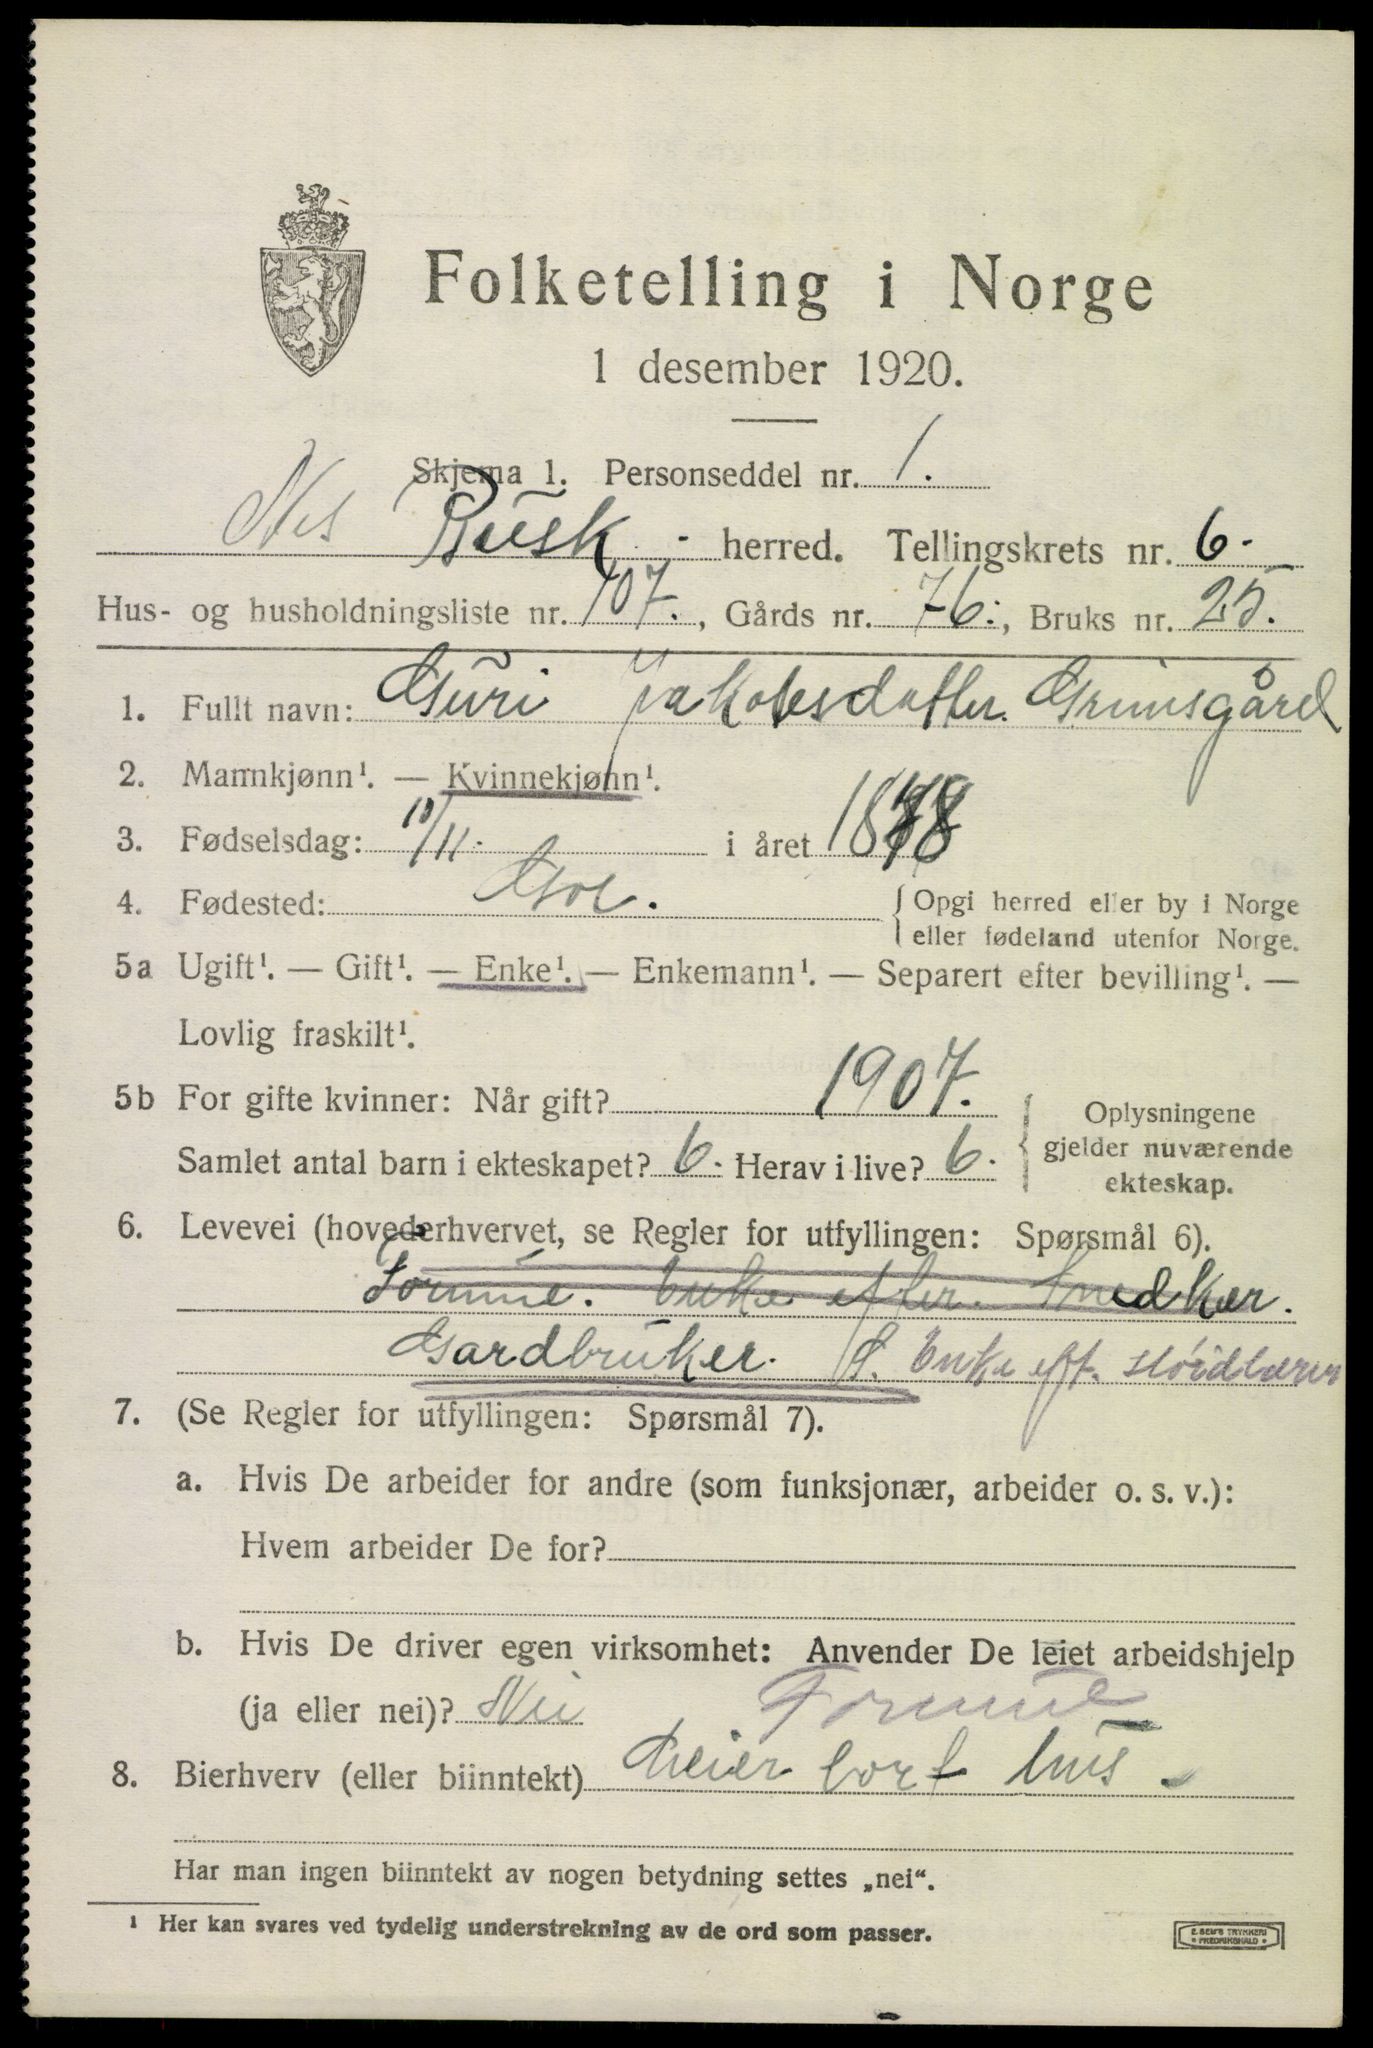 Folketelling i Norge
1 desember 1920.
Skjema 1. Personseddel nr. 1.
Nes Busk - herred. Tellingskrets nr. 6.
Hus- og husholdningsliste nr. 107., Gårds nr. 76., Bruks nr. 25.
1. Fullt navn: Guri Jakobsdatter Grimsgård
2. Mannkjønn¹. — Kvinnekjønn¹.
3. Fødselsdag: 10/11. i året 1878
4. Fødested: Gol. { Opgi herred eller by i Norge
eller fødeland utenfor Norge.
5a Ugift¹. — Gift¹. — Enke¹. — Enkemann¹. — Separert efter bevilling¹. —
Lovlig fraskilt¹.
5b For gifte kvinner: Når gift? 1907.
Samlet antal barn i ekteskapet? 6. Herav i live? 6.
{ Oplysningene
gjelder nuværende
ekteskap.
6. Levevei (hovederhvervet, se Regler for utfyllingen: Spørsmål 6).
Formue. Enke efter Snedker.
Gardbruker. S. Enke eft. sløidlærer
7. (Se Regler for utfyllingen: Spørsmål 7).
a. Hvis De arbeider for andre (som funksjonær, arbeider o. s. v.):
Hvem arbeider De for?
b. Hvis De driver egen virksomhet: Anvender De leiet arbeidshjelp
(ja eller nei)? Nei Formue
8. Bierhverv (eller biinntekt) leier bort hus
Har man ingen biinntekt av nogen betydning settes „nei“.
¹ Her kan svares ved tydelig understrekning av de ord som passer.
E. SEM'S TRYKKERI
FREDRIKSHALD